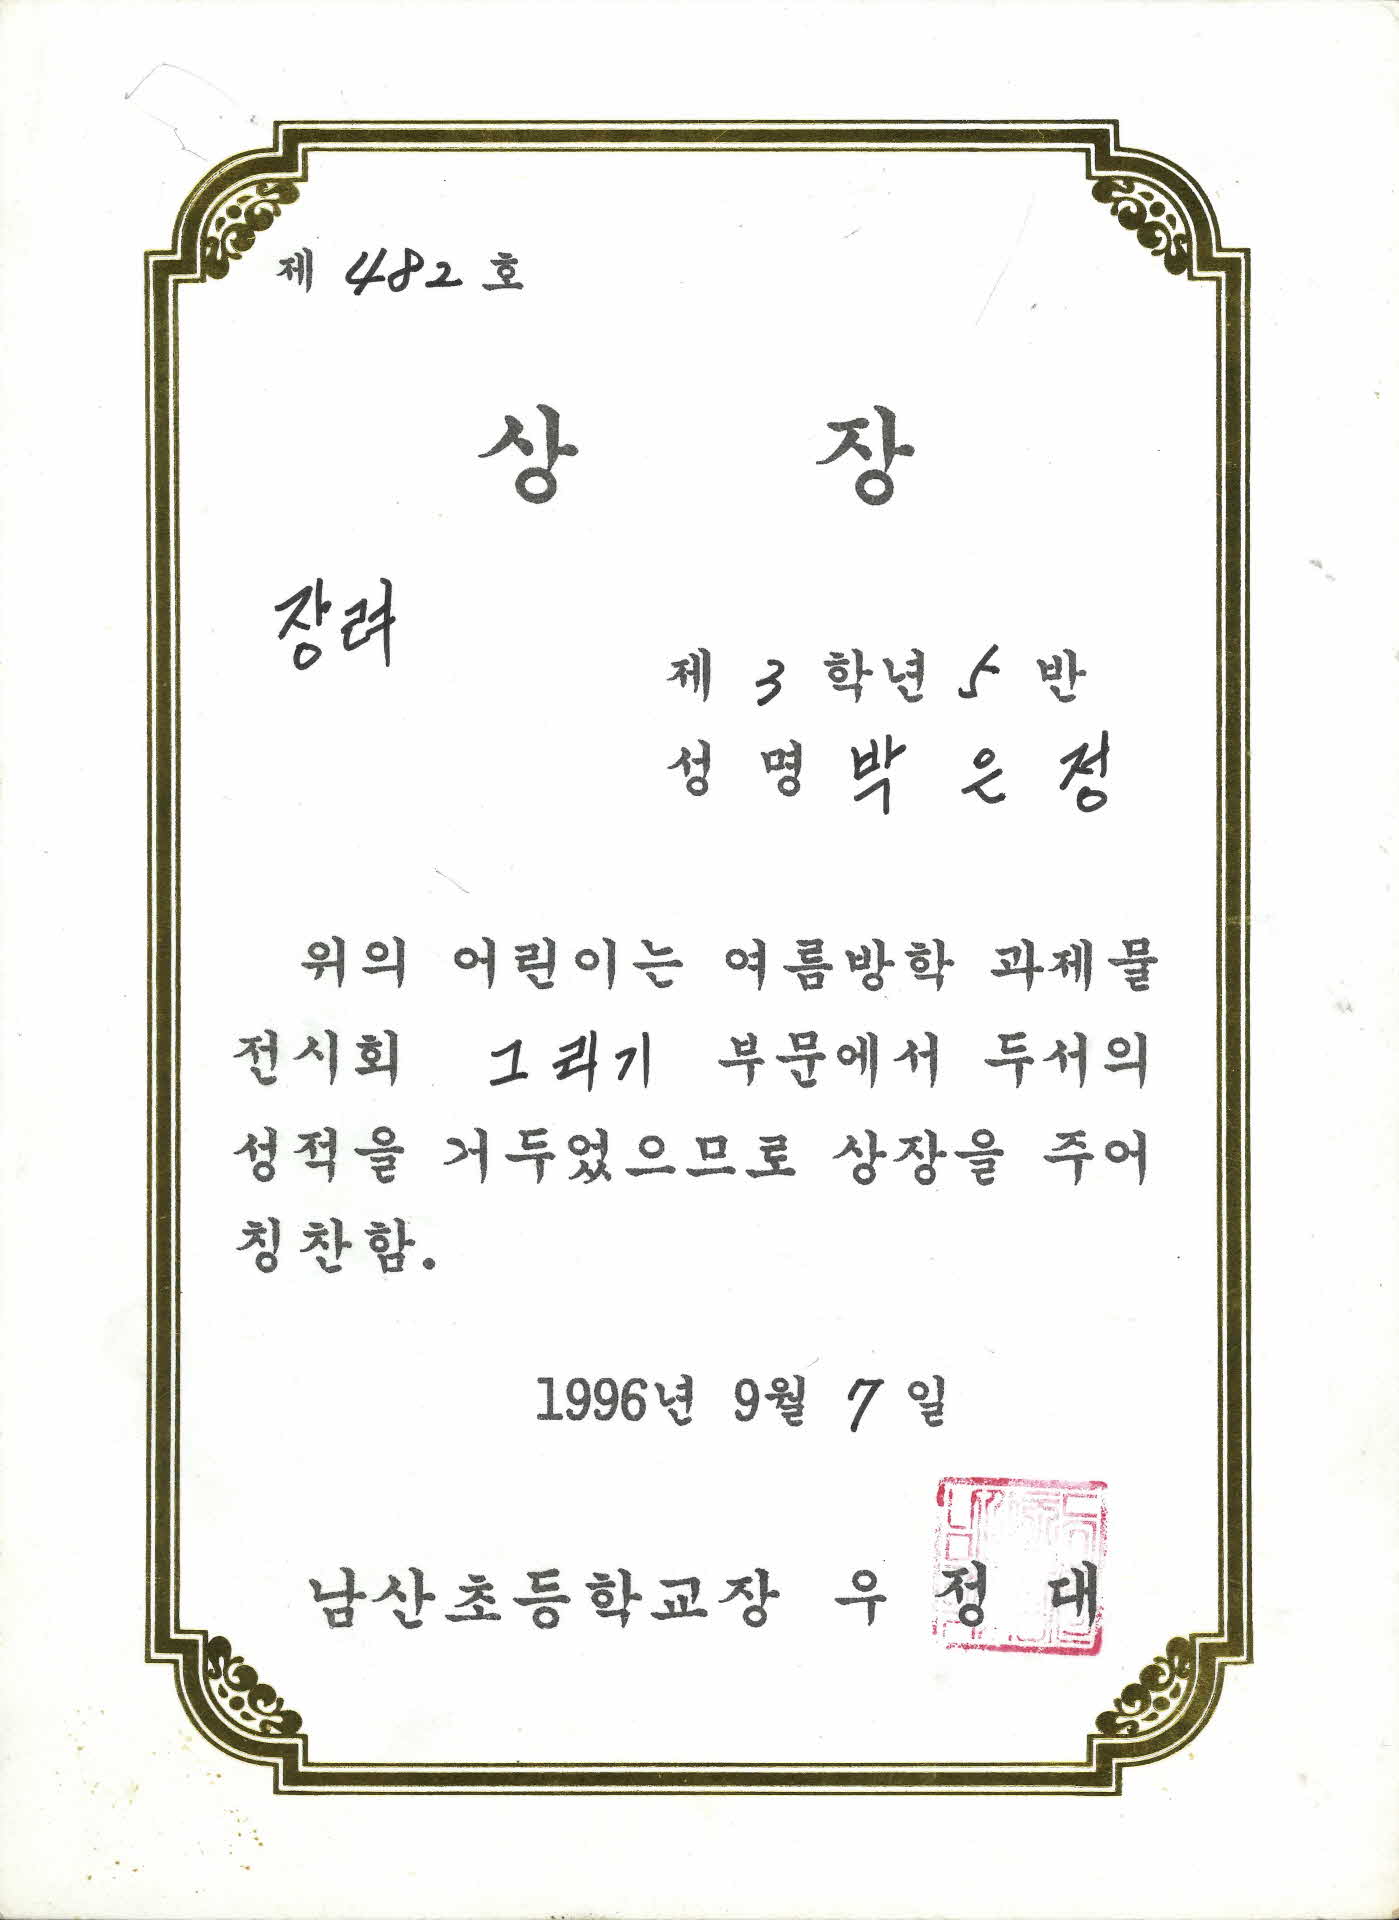 제 482 호
상 장
장려
제 3 학년 5 반
성 명 박 은 정
위의 어린이는 여름방학 과제물
전시회 그리기 부문에서 두서의
성적을 거두었으므로 상장을 주어
칭찬함.
1996년 9월 7 일
남산초등학교장 우 정 대